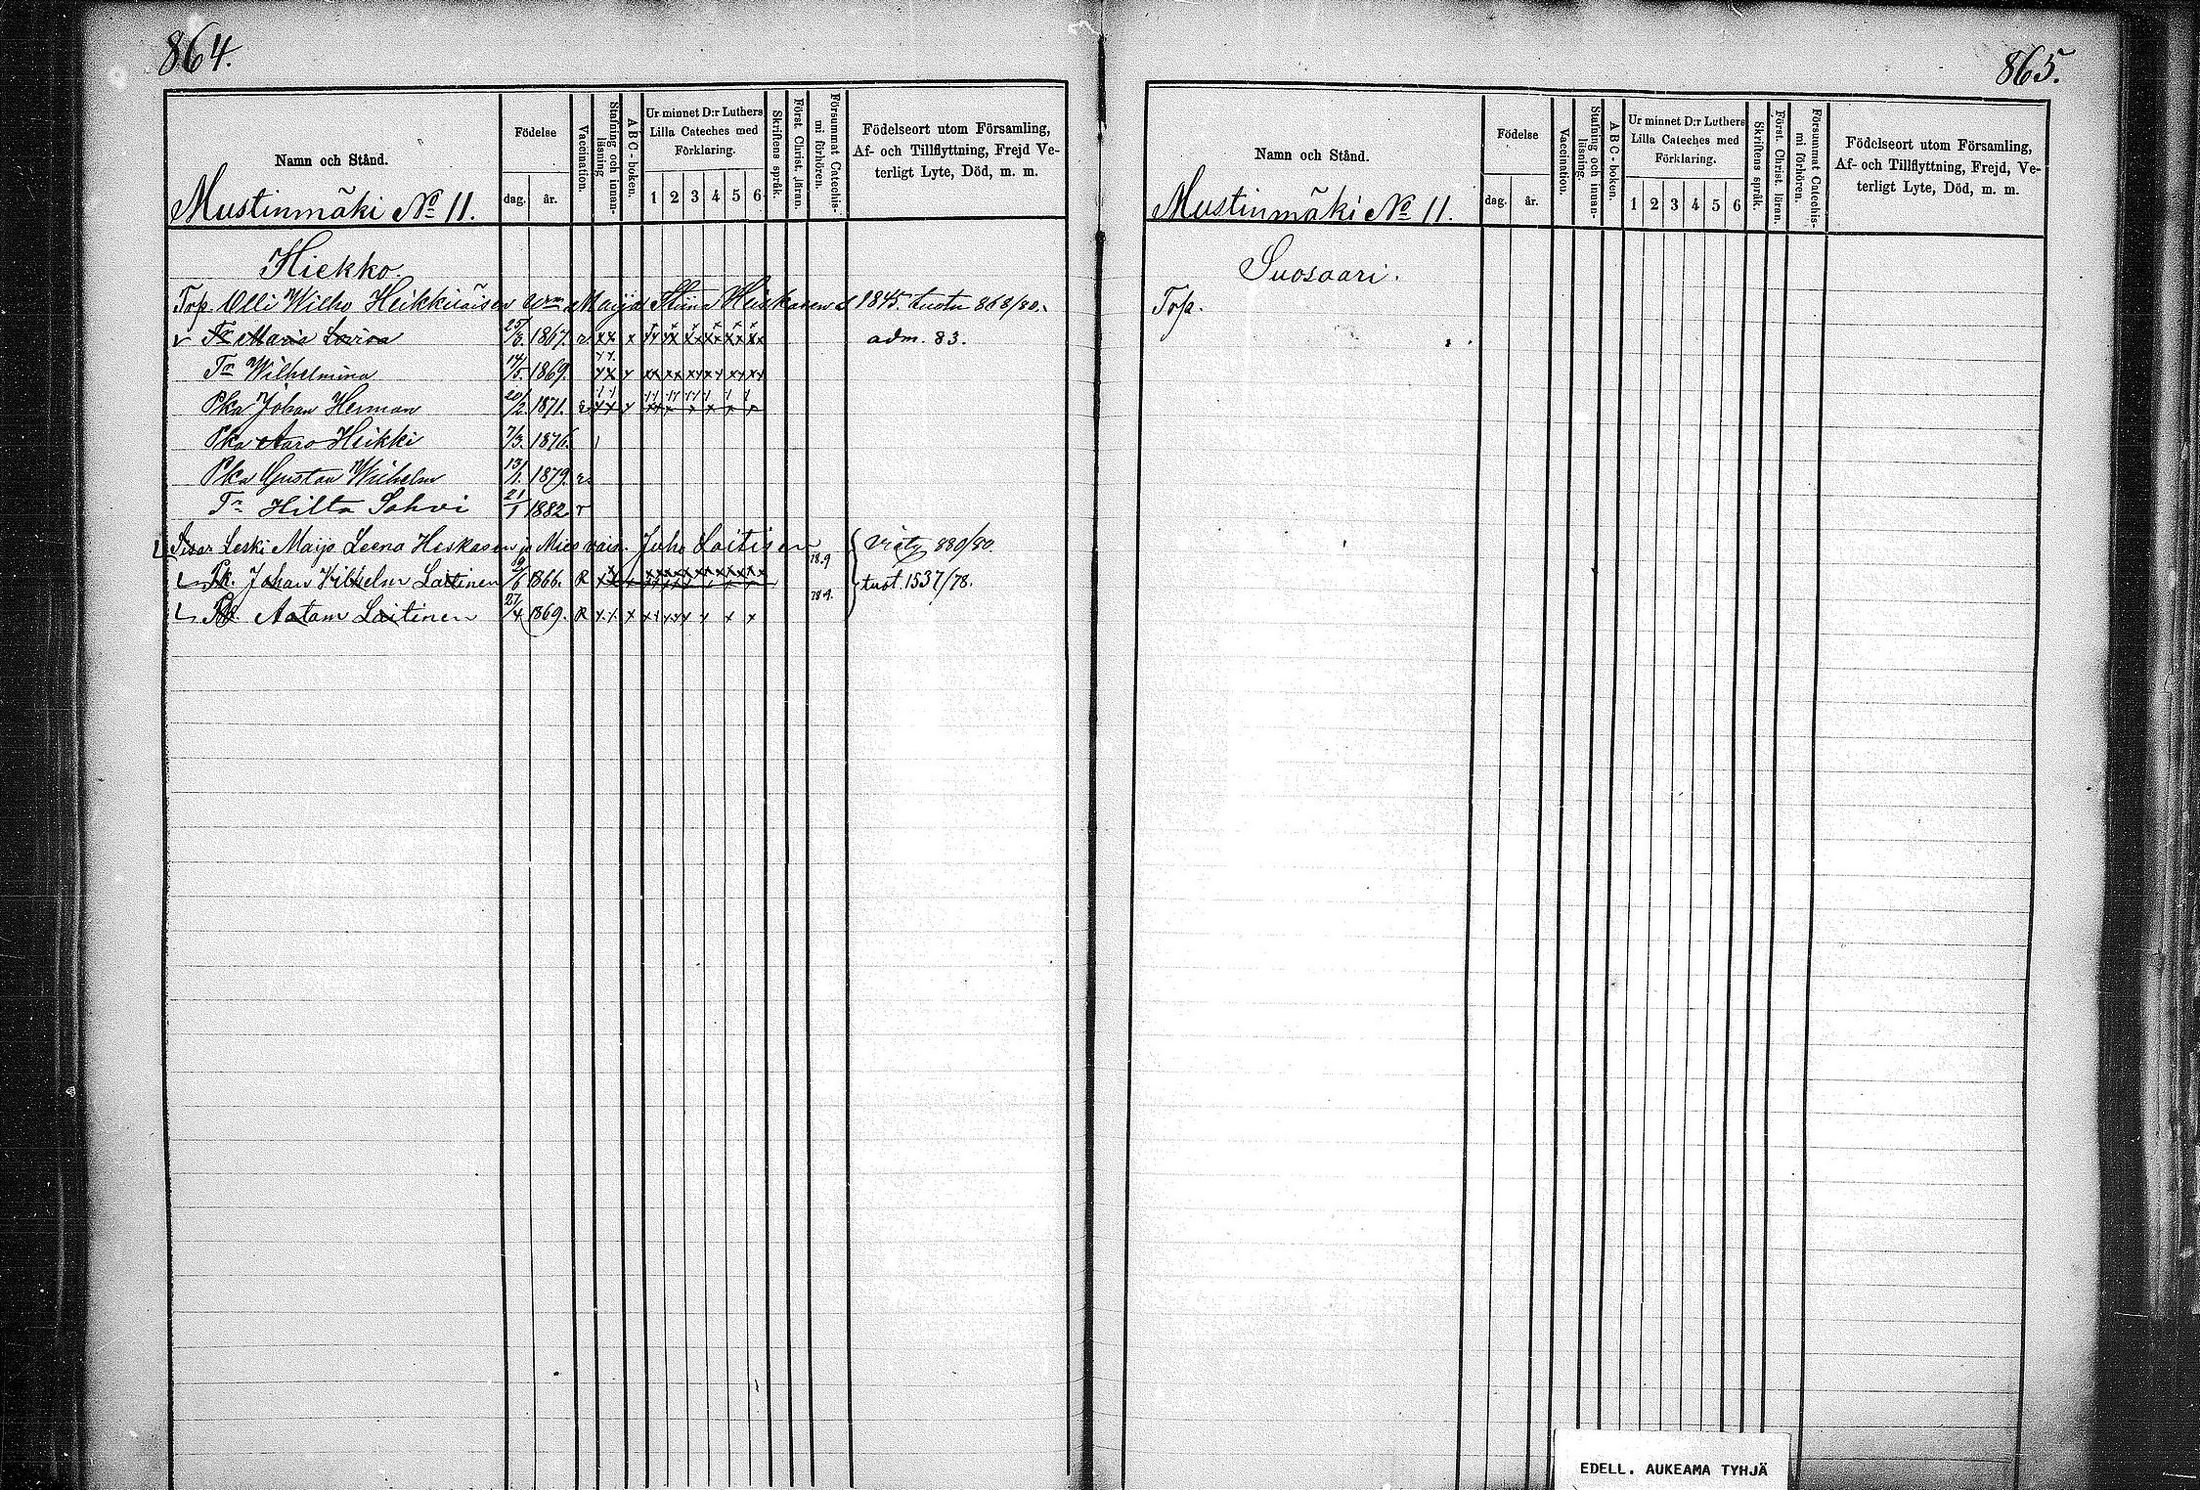 864.
Namn och Stånd.
Mustinmäki No 11.
Födelse
dag. år.
Vaccination.
Stafning och innan-
läsning
ABC-boken.
Ur minnet D:r Luthers
Lilla Cateches med
Förklaring.
1 2 3 4 5 6
Skriftens språk.
Först. Christ. läran.
Försummat Catechis-
mi förhören.
Födelseort utom Församling,
Af- och Tillflyttning, Frejd Ve-
terligt Lyte, Död, m. m.
Hiekko.
Torp. Olli Wilho Heikkinäisen Maija Stiina Heiskasen 1845. tuotu 868/80.
v Tr Maria Lovisa 25/8. 1867. r xx x adm. 83.
Tr Wilhelmina 14/5. 1869.
Pka Johan Herman 20/2. 1871.
Pka Aaro Heikki 7/3. 1876.
Pka Gustav Wilhelm 13/1. 1879. r
Tr Hilta Sohvi 21/1 1882 r
Sisar Leski Maija Leena Heskasen ja Mies vain. Juho Laitisen viety 889/80
Pk. Johan Vilhelm Laitinen 19/6 1866. R 78.9 tuot. 1537/78.
Pk. Aatam Laitinen 27/4 1869. R 78.9.
865.
Namn och Stånd.
Mustinmäki No 11.
Födelse
dag. år.
Vaccination.
Stafning och innan-
läsning.
ABC-boken.
Ur minnet D:r Luthers
Lilla Cateches med
Förklaring.
1 2 3 4 5 6
Skriftens språk.
Först. Christ. läran.
Försummat Catechis-
mi förhören.
Födelseort utom Församling,
Af- och Tillflyttning, Frejd, Ve-
terligt Lyte, Död, m. m.
Suosaari.
Torp.
EDELL. AUKEAMA TYHJÄ